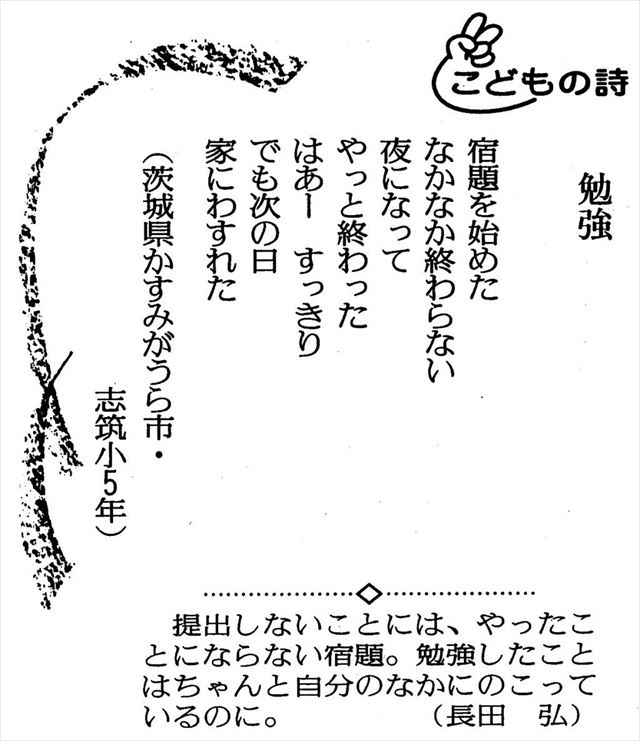 こどもの詩
勉強
宿題を始めた
なかなか終わらない
夜になって
やっと終わった
はあー　すっきり
でも次の日
家にわすれた
（茨城県かすみがうら市・
志筑小5年）
提出しないことには、やったこ
とにならない宿題。勉強したこと
はちゃんと自分のなかにのこって
いるのに。　（長田　弘）